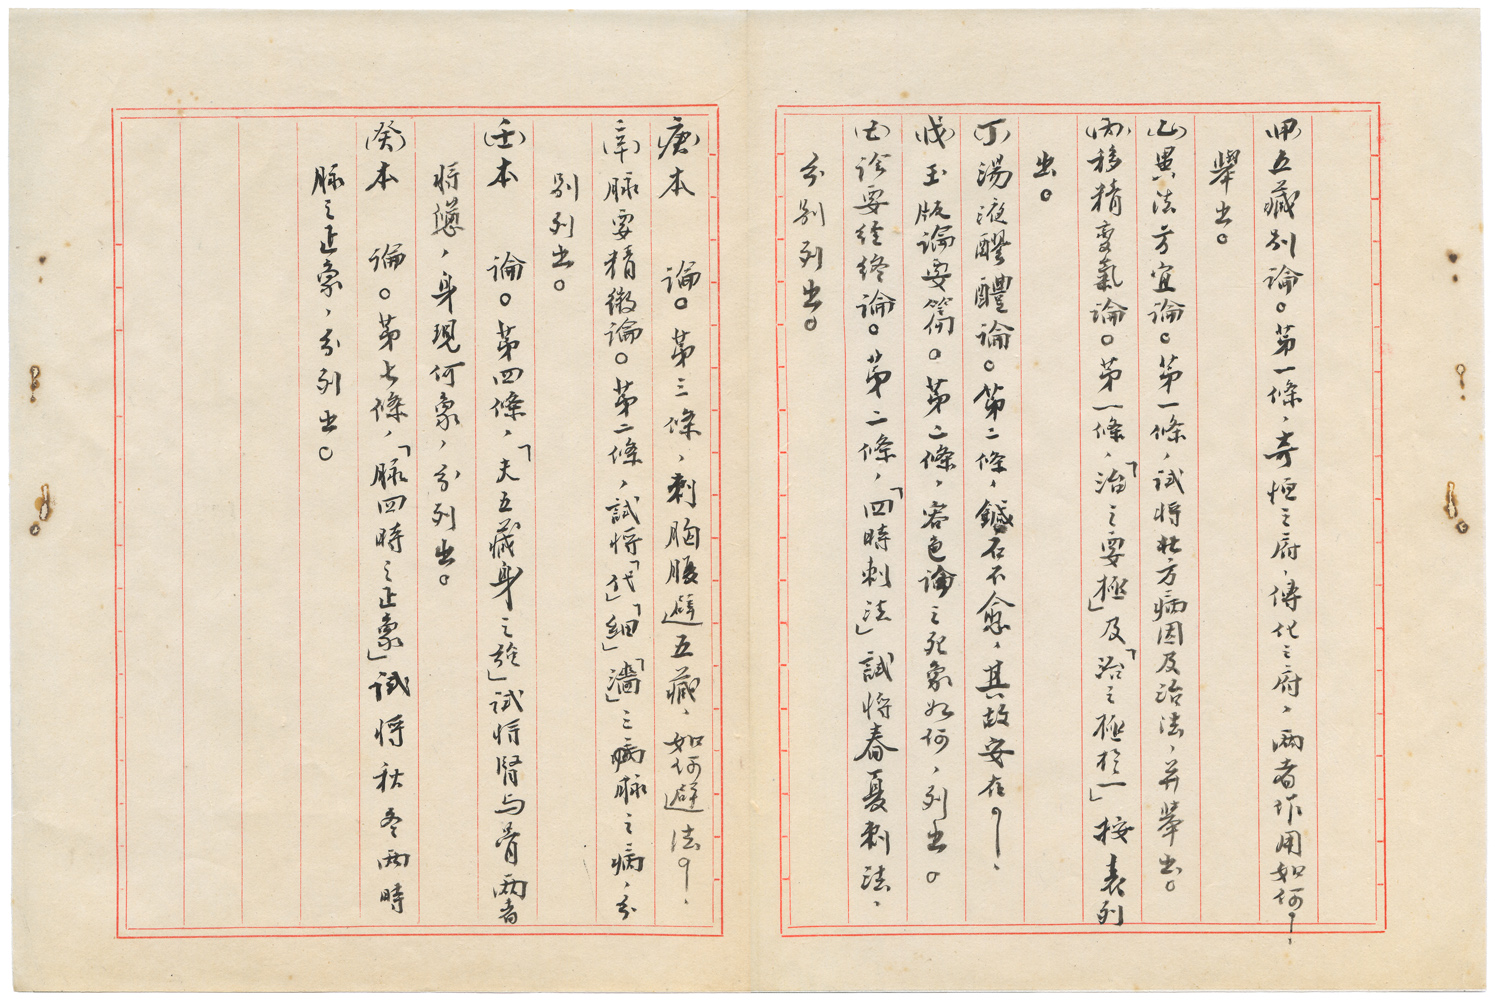 (甲)五藏别論。第一條,奇恒之府,傳化之府,兩者作用如何?,
舉出。
(乙)異法方宜論。第一條,試将壯方病因及治法,并舉出。
(丙)移精変氣論。第一條,「治之要極」及「治之極於一」按表列
出。
(丁)湯液醪醴論。第二條,鍼石不愈,其故安在?,
(戊)玉版論要篇。第二條,容色論之死象如何,列出。
(己)診要經終論。第二條,「四時刺法」試将春夏刺法,
分别列出。
(庚)本 論。第三條,刺胸腹避五藏,如何避法?,
(辛)脉要精微論。第二條,試将「代」「細」「濇」三病脉之病,分
别列出。
(壬)本 論。第四條,「夫五藏身之強」試将腎与骨兩者
将憊,身現何象,分列出。
(癸)本 論。第七條,「脉四時之正象」試将秋冬兩時
脉之正象,分列出。